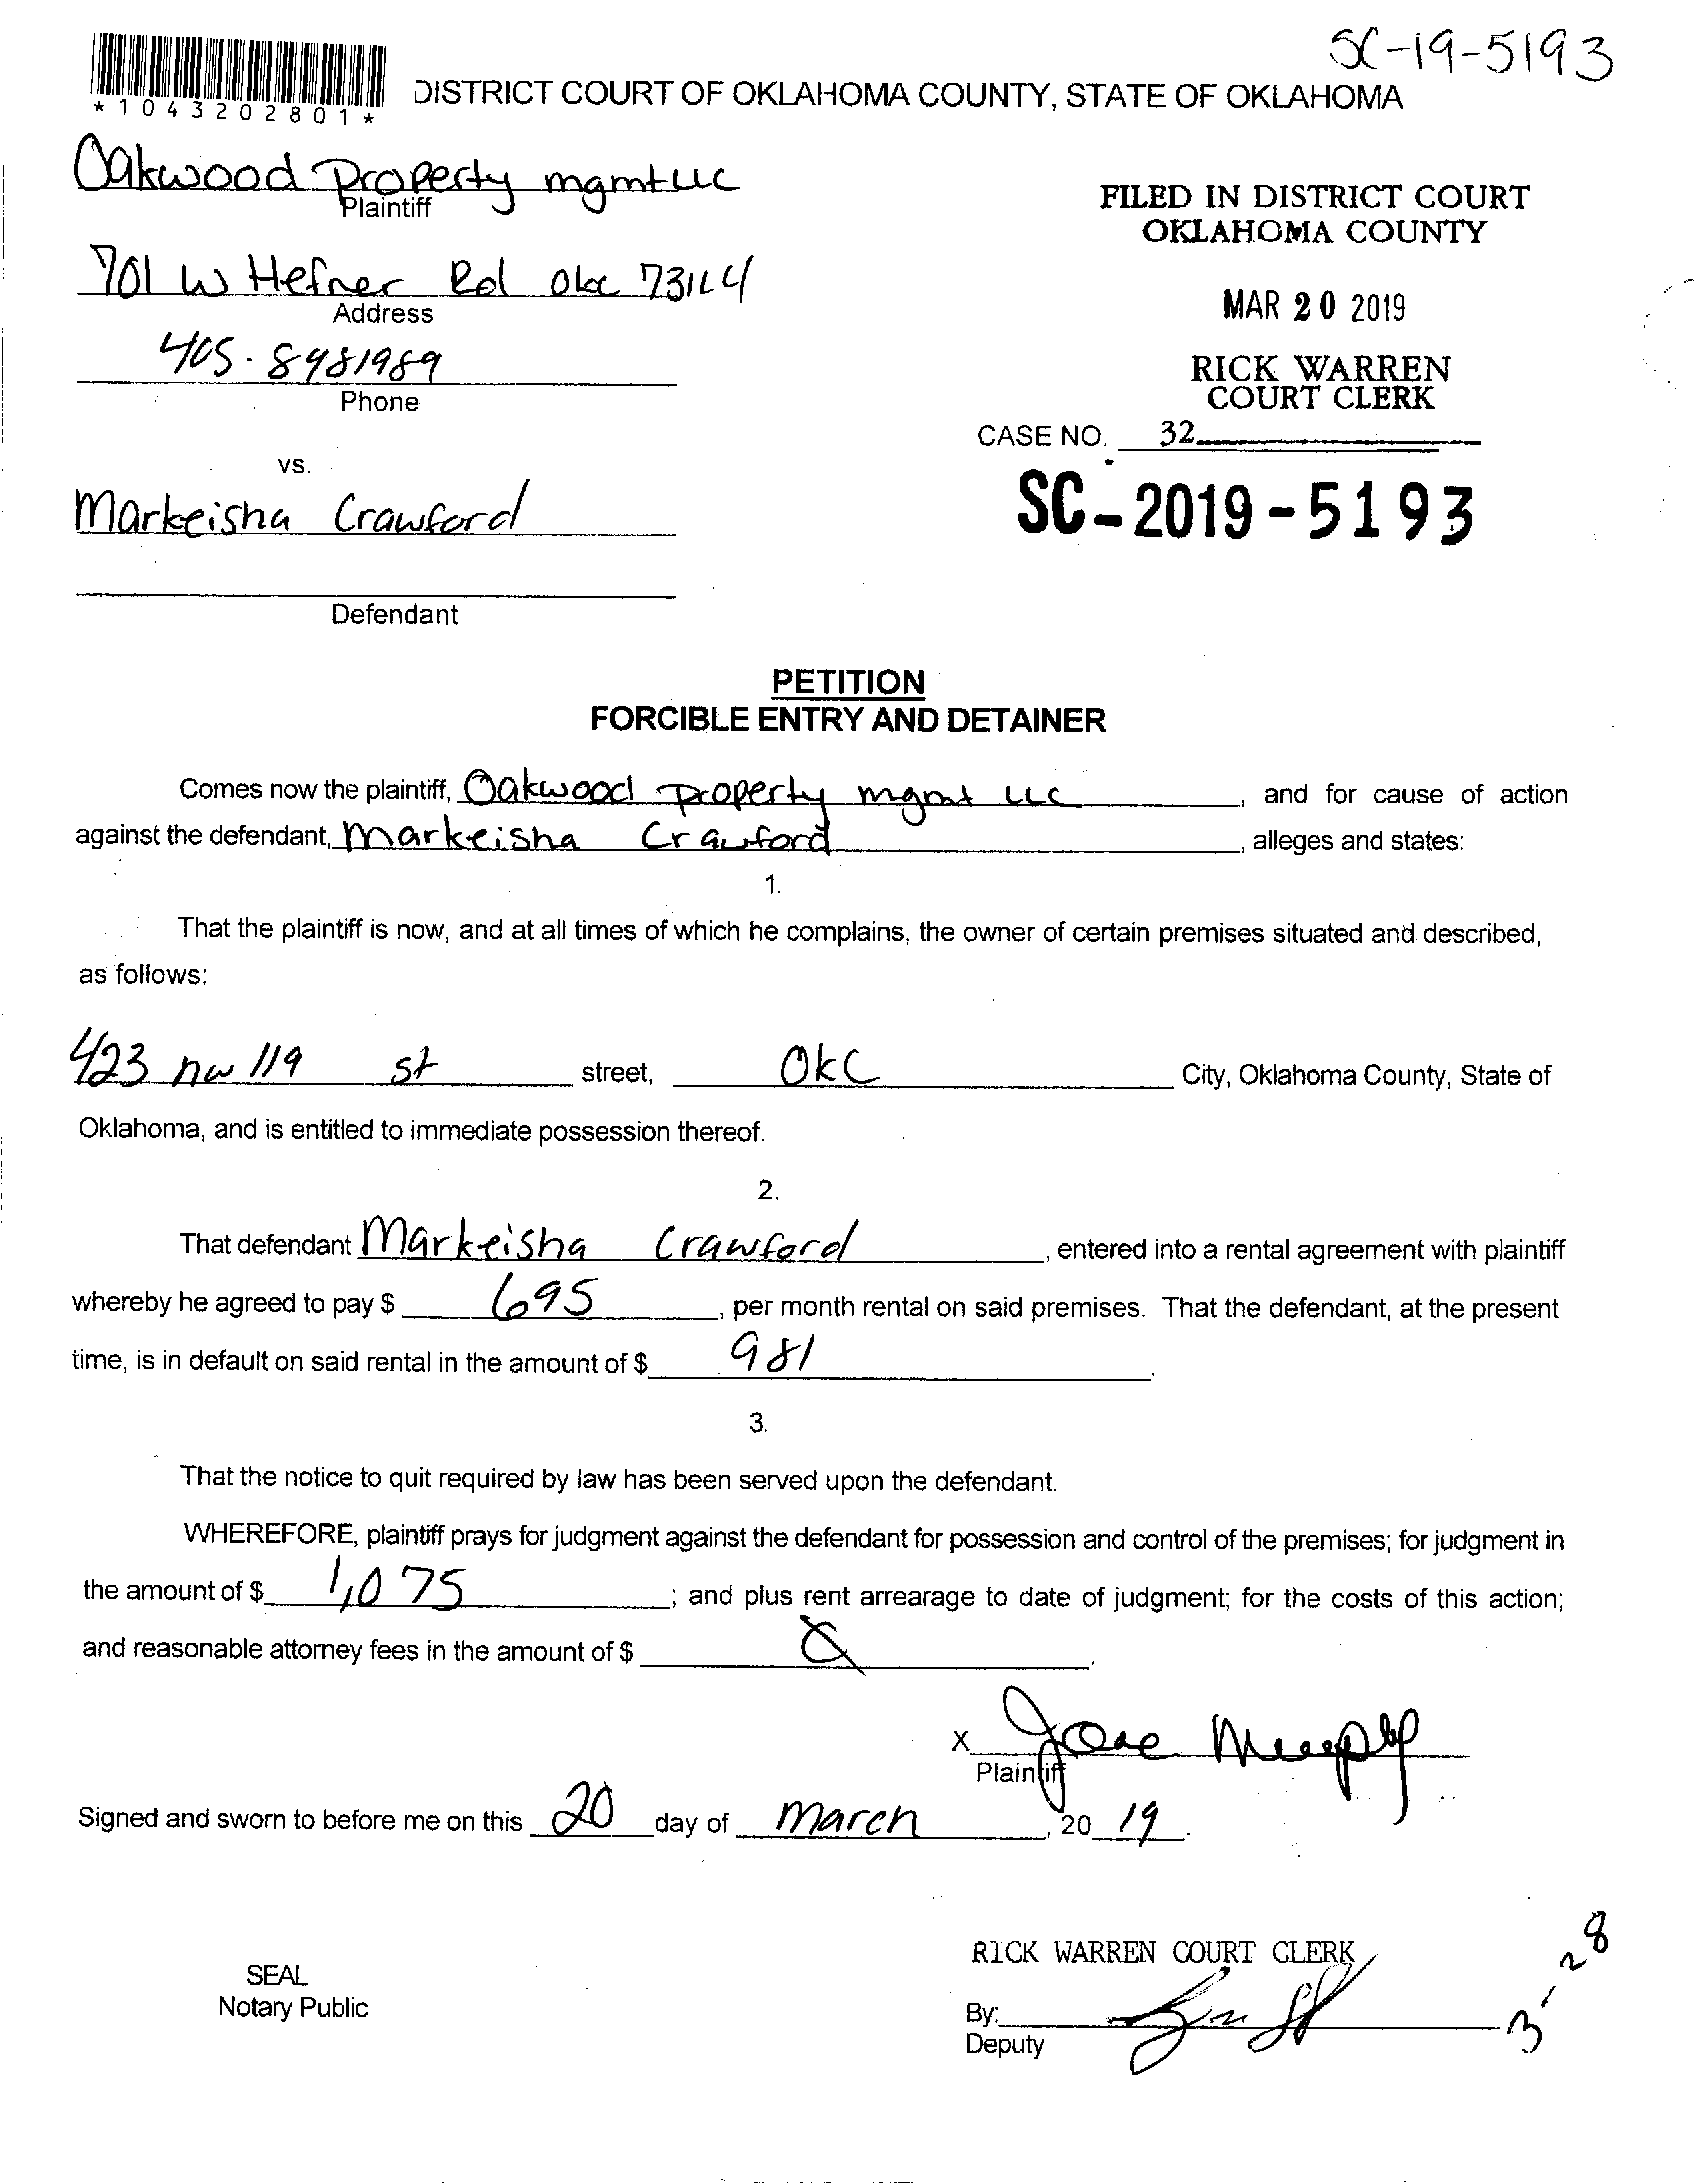 SC-19-5193
*1043202801*
DISTRICT COURT OF OKLAHOMA COUNTY, STATE OF OKLAHOMA
Oakwood Property mgmt LLC
Plaintiff
701 W Hefner Rd Okc 73114
Address
405-8481989
Phone
vs.
Markeisha Crawford
Defendant
FILED IN DISTRICT COURT
OKLAHOMA COUNTY
MAR 20 2019
RICK WARREN
COURT CLERK
CASE NO. 32
SC-2019-5193
PETITION
FORCIBLE ENTRY AND DETAINER
Comes now the plaintiff, Oakwood Property mgmt LLC, and for cause of action
against the defendant, Markeisha Crawford, alleges and states:
1.
That the plaintiff is now, and at all times of which he complains, the owner of certain premises situated and described,
as follows:
423 nw 119 st street, OKC City, Oklahoma County, State of
Oklahoma, and is entitled to immediate possession thereof.
2.
That defendant Markeisha Crawford, entered into a rental agreement with plaintiff
whereby he agreed to pay $ 695, per month rental on said premises. That the defendant, at the present
time, is in default on said rental in the amount of $ 981.
3.
That the notice to quit required by law has been served upon the defendant.
WHEREFORE, plaintiff prays for judgment against the defendant for possession and control of the premises; for judgment in
the amount of $ 1,075; and plus rent arrearage to date of judgment; for the costs of this action;
and reasonable attorney fees in the amount of $
X Jane Murphy
Plaintiff
Signed and sworn to before me on this 20 day of March, 20 19.
SEAL
Notary Public
RICK WARREN COURT CLERK
By:
Deputy
3-28